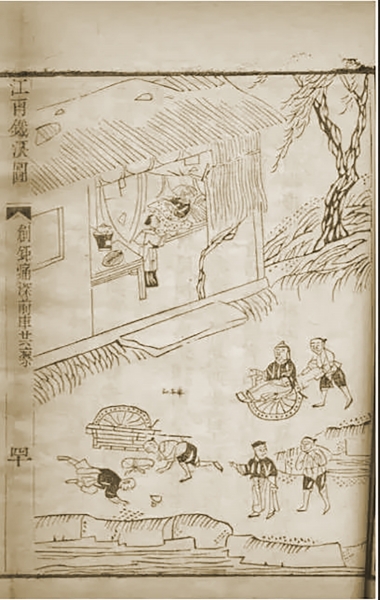 江南鐵淚圖
創鉅痛深前車共鑒
四十